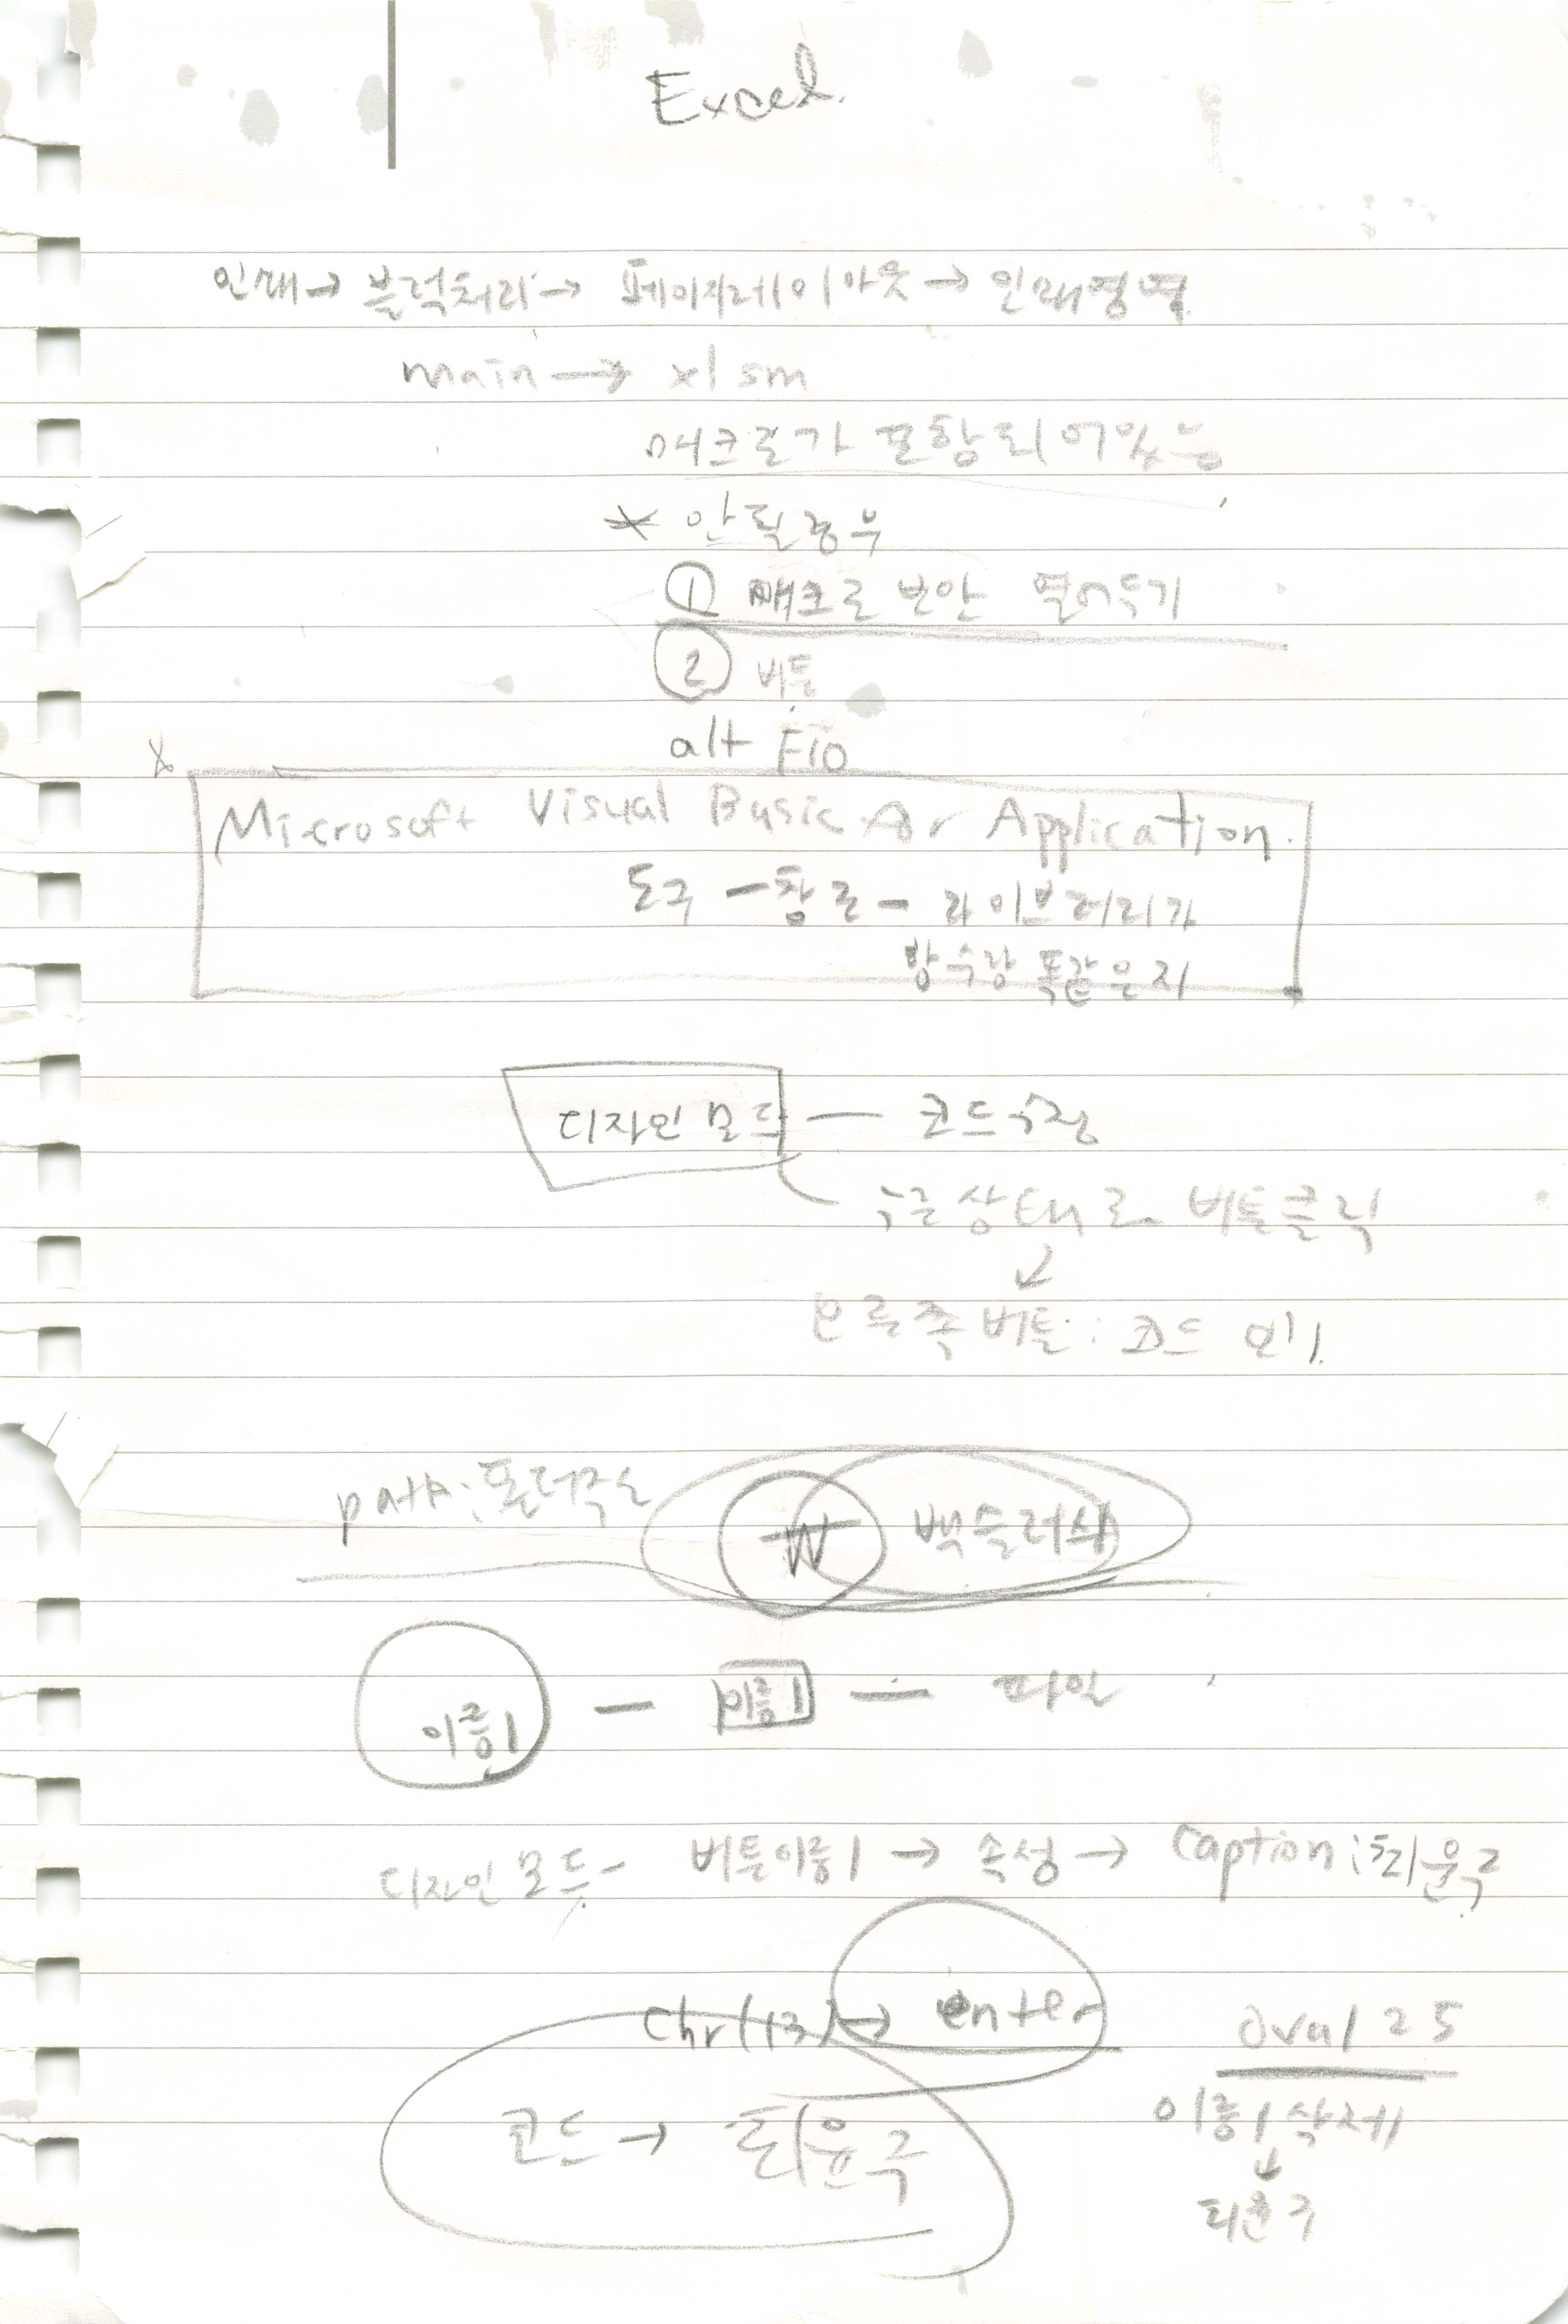 Excel.
인쇄→ 블럭처리→ 페이지레이아웃→ 인쇄영역
main → xlsm
매크로가 포함되어있음
* 안될경우
① 매크로 보안 열어두기
② 버튼
alt F10
Microsoft Visual Basic for Application.
도구 - 참조 - 라이브러리가
똑같은지
디자인모드 — 코드수정
누른상태로 버튼클릭
↓
오른쪽버튼 : 코드 보기
path : 폴더주소 ₩ 백슬러시
이름1 — 이름1 — 파일
디자인모드 - 버튼이름1 → 속성 → Caption : 최윤국
chr(13) → enter
oval 25
코드 → 최윤국
이름1 삭제
↓
최윤국